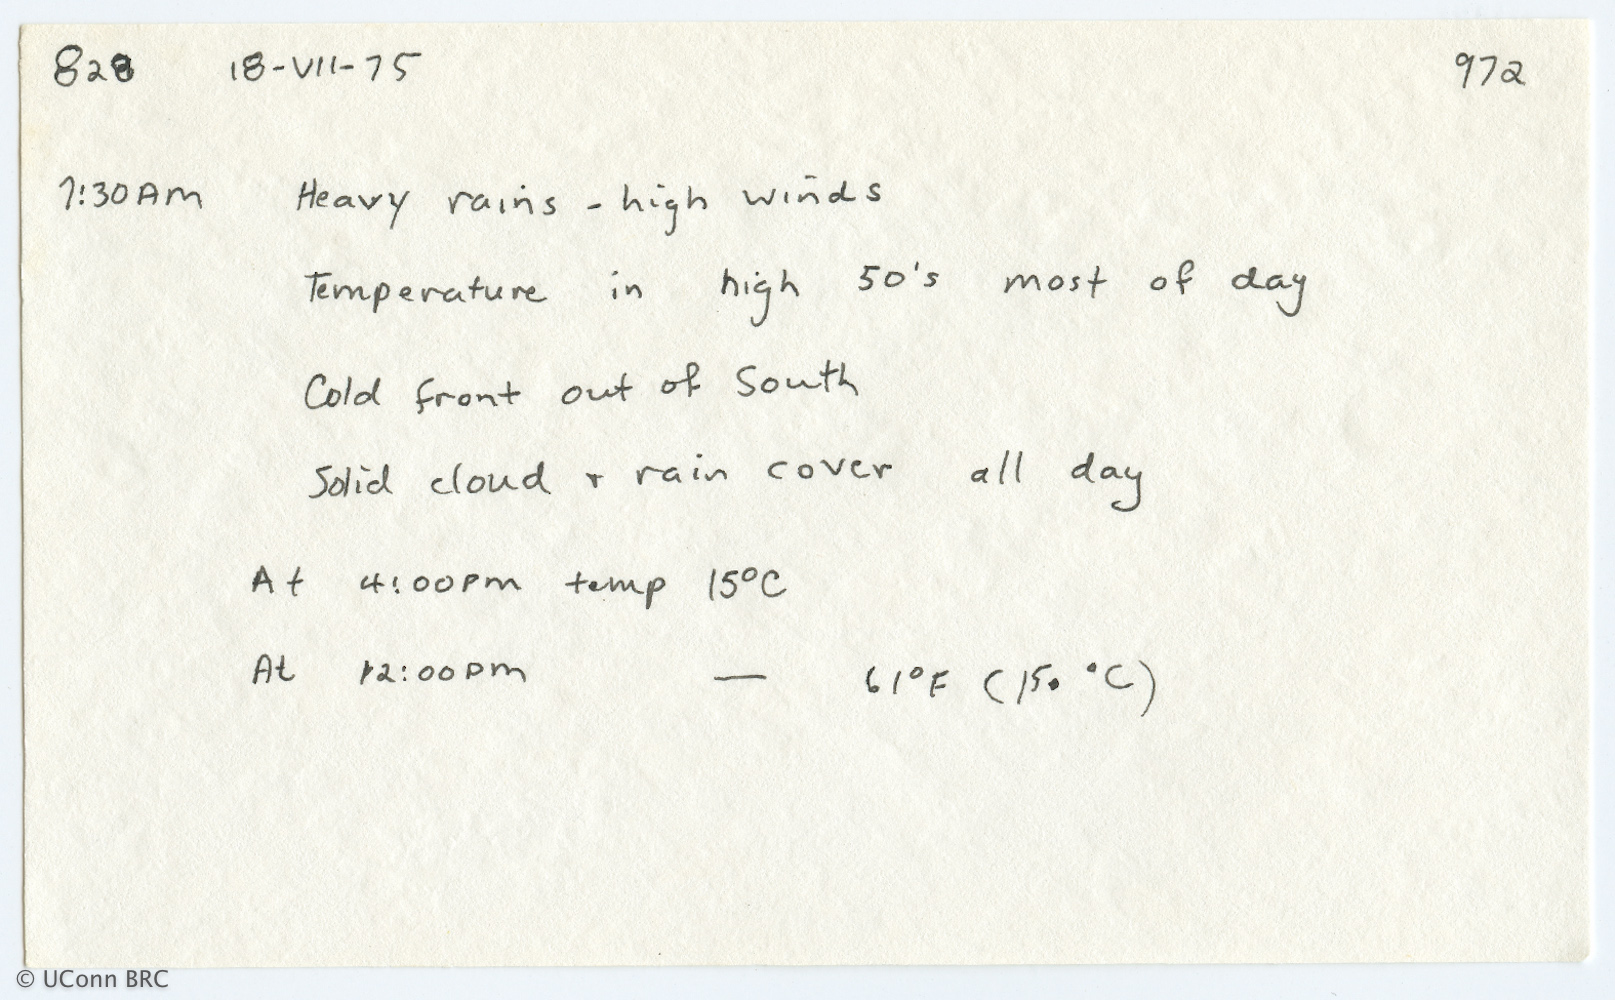 828 18-VII-75 972
7:30AM Heavy rains - high winds
Temperature in high 50's most of day
Cold front out of South
Solid cloud + rain cover all day
At 4:00pm temp 15°C
At 12:00pm — 61°F (15. °C)
© UConn BRC